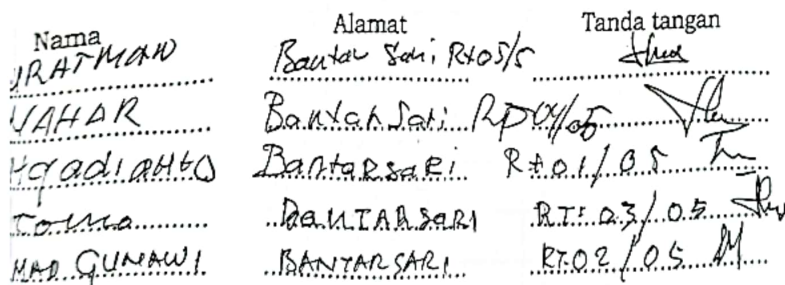 Nama Alamat Tanda tangan
URATMAN Bantar Sari Rt 05/5
VAHAR Bantar Sari RT 04/05
Hgadianto Bantarsari Rt 01/05
Toma BANTARSARI RT: 03/05
MAD GUNAWI. BANTARSARI RT.02/05